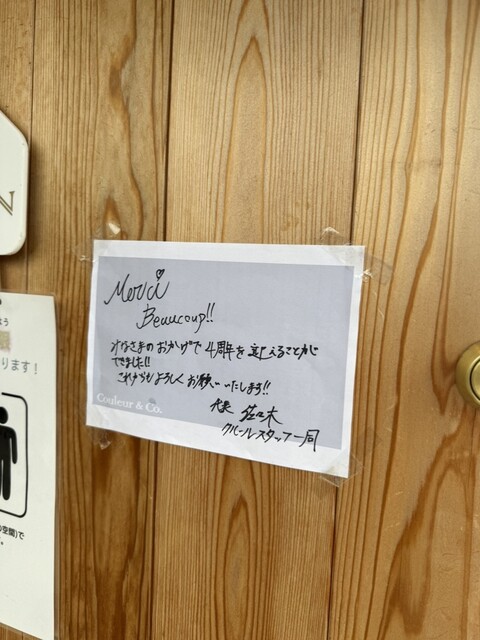 Merci
Beaucoup!!
みなさまのおかげで4周年を迎えることが
できました!!
これからもよろしくお願いいたします!!
Couleur & Co.
代表 佐々木
クルールスタッフ一同
よう
ります!
空間)で
N